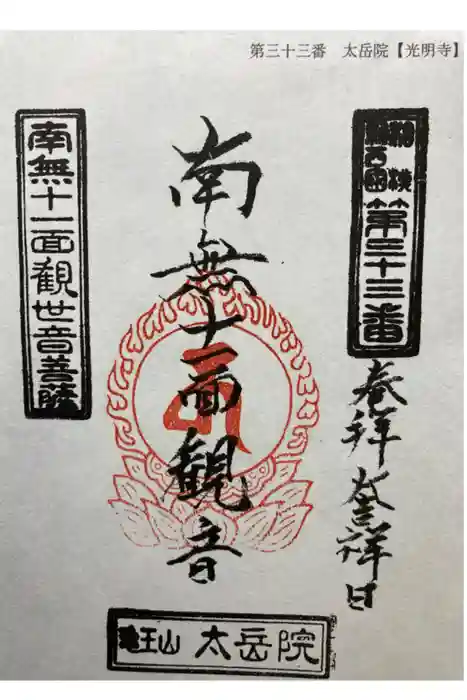 第三十三番　太岳院【光明寺】
第三十三番
奉拝
吉祥日
南無十一面観音
南無十一面觀世音菩薩
龍王山 太岳院